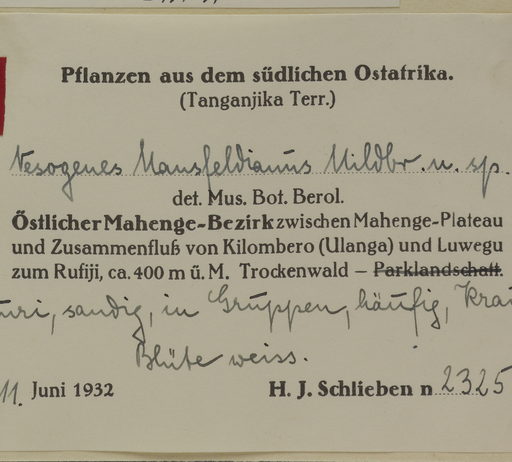 Pflanzen aus dem südlichen Ostafrika.
(Tanganjika Terr.)
Nesogenes Mansfeldianus Mildbr. n. sp.
det. Mus. Bot. Berol.
Östlicher Mahenge-Bezirk zwischen Mahenge-Plateau
und Zusammenfluß von Kilombero (Ulanga) und Luwegu
zum Rufiji, ca. 400 m ü. M. Trockenwald – Parklandschaft.
sandig, in Gruppen, häufig,
Blüte weiss.
11. Juni 1932 H. J. Schlieben n 2325